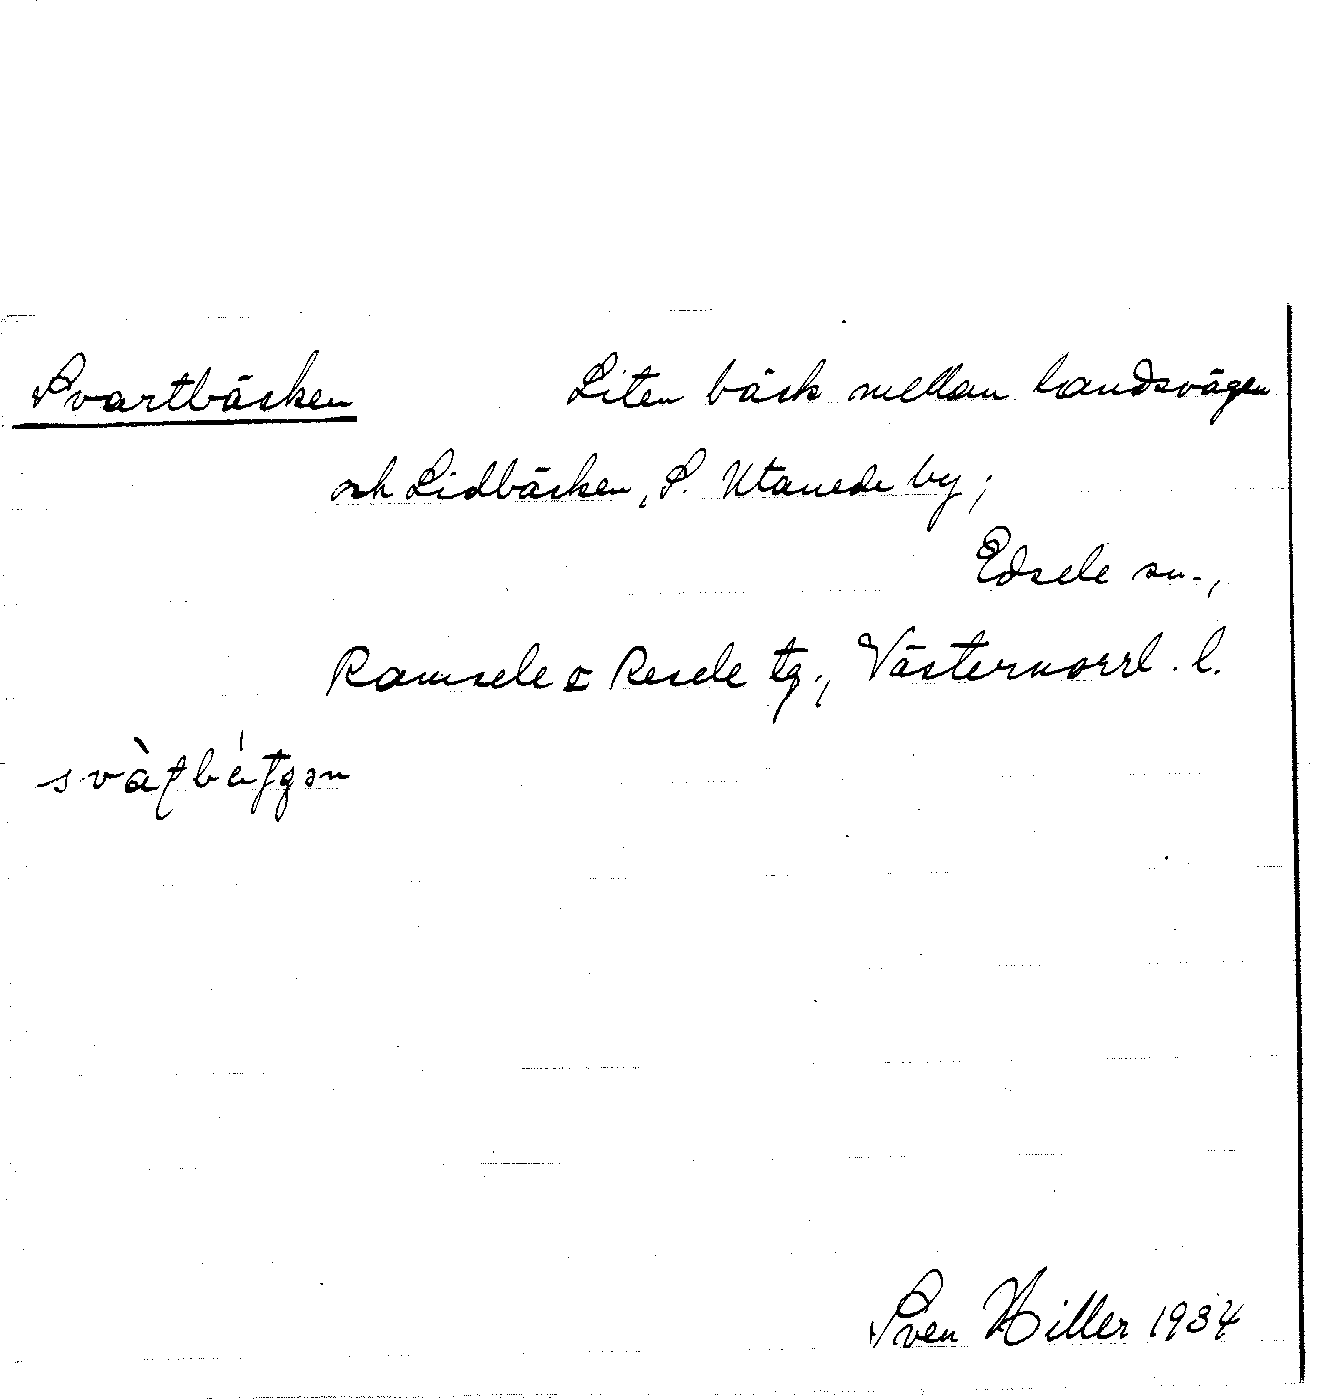 Svartbäcken Liten bäck mellan landsvägen
och Lidbäcken, S. Utanede by;
Edsele sn.,
Ramsele o Resele tg., Västernorrl. l.
Sven Hiller 1934